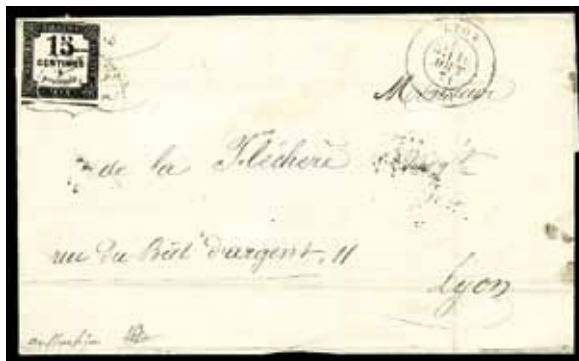 15
CENTIMES
à
percevoir
LYON
Monsieur
de la Fléchère
rue du Bât d'argent, 11
Lyon